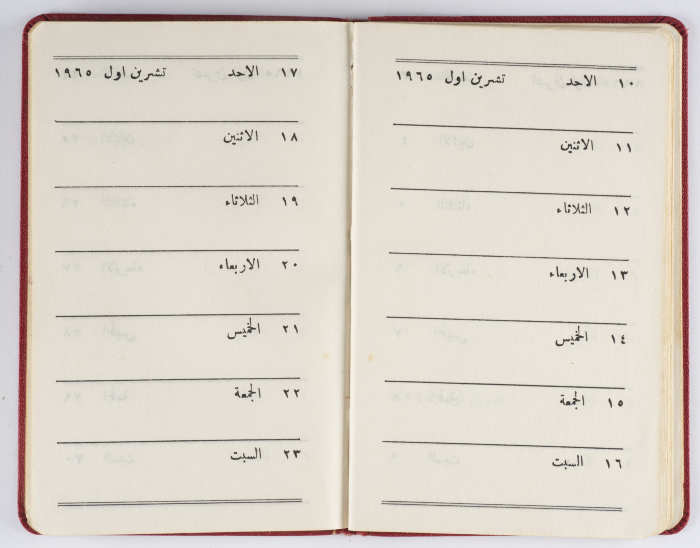 ١٠ الاحد تشرين اول ١٩٦٥
١١ الاثنين
١٢ الثلاثاء
١٣ الاربعاء
١٤ الخميس
١٥ الجمعة
١٦ السبت
١٧ الاحد تشرين اول ١٩٦٥
١٨ الاثنين
١٩ الثلاثاء
٢٠ الاربعاء
٢١ الخميس
٢٢ الجمعة
٢٣ السبت